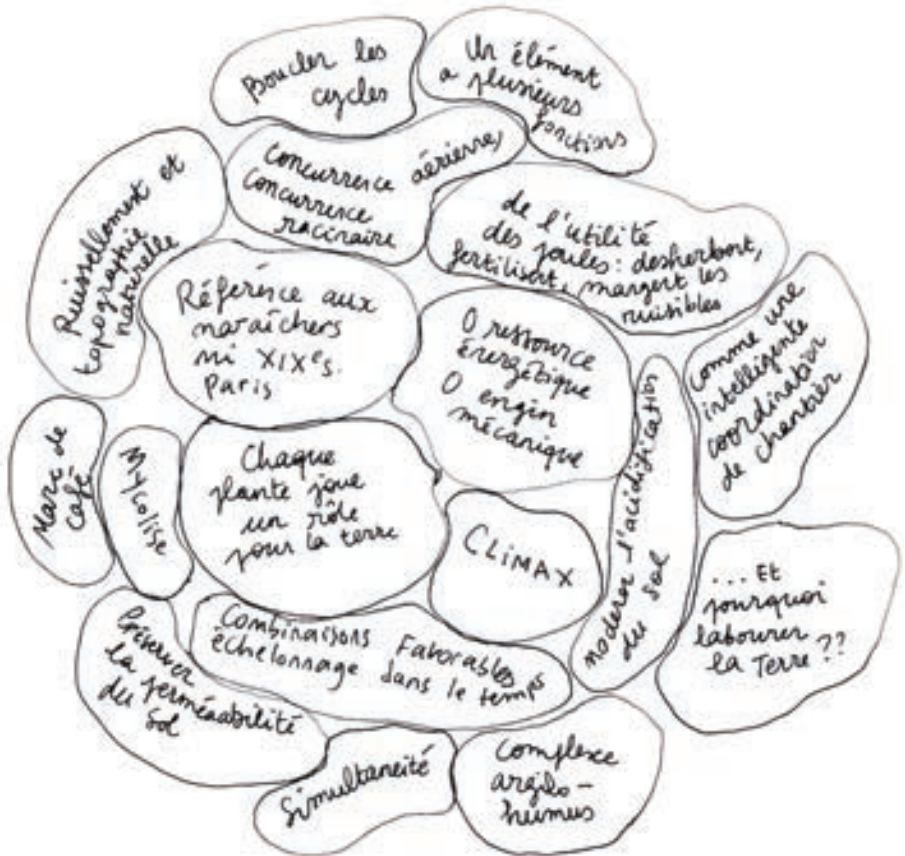 Boucler les
cycles
Un élément
a plusieurs
fonctions
Concurrence aérienne,
Concurrence
racinaire
Ruissellement et
topographie
naturelle
de l'utilité
des poules: desherbent,
fertilisent, mangent les
nuisibles
Référence aux
maraîchers
mi XIXe s.
Paris
0 ressource
énergétique
0 engin
mécanique
comme une
intelligente
coordination
de chantier
Marc de
café
Mycolise
Chaque
plante joue
un rôle
pour la terre
CLiMAX
moderer l'acidification
du sol
... Et
pourquoi
labourer
la Terre ??
Combinaisons Favorables
échelonnage dans le temps
Préserver
la perméabilité
du sol
Simultaneité
Complexe
argilo-
humus